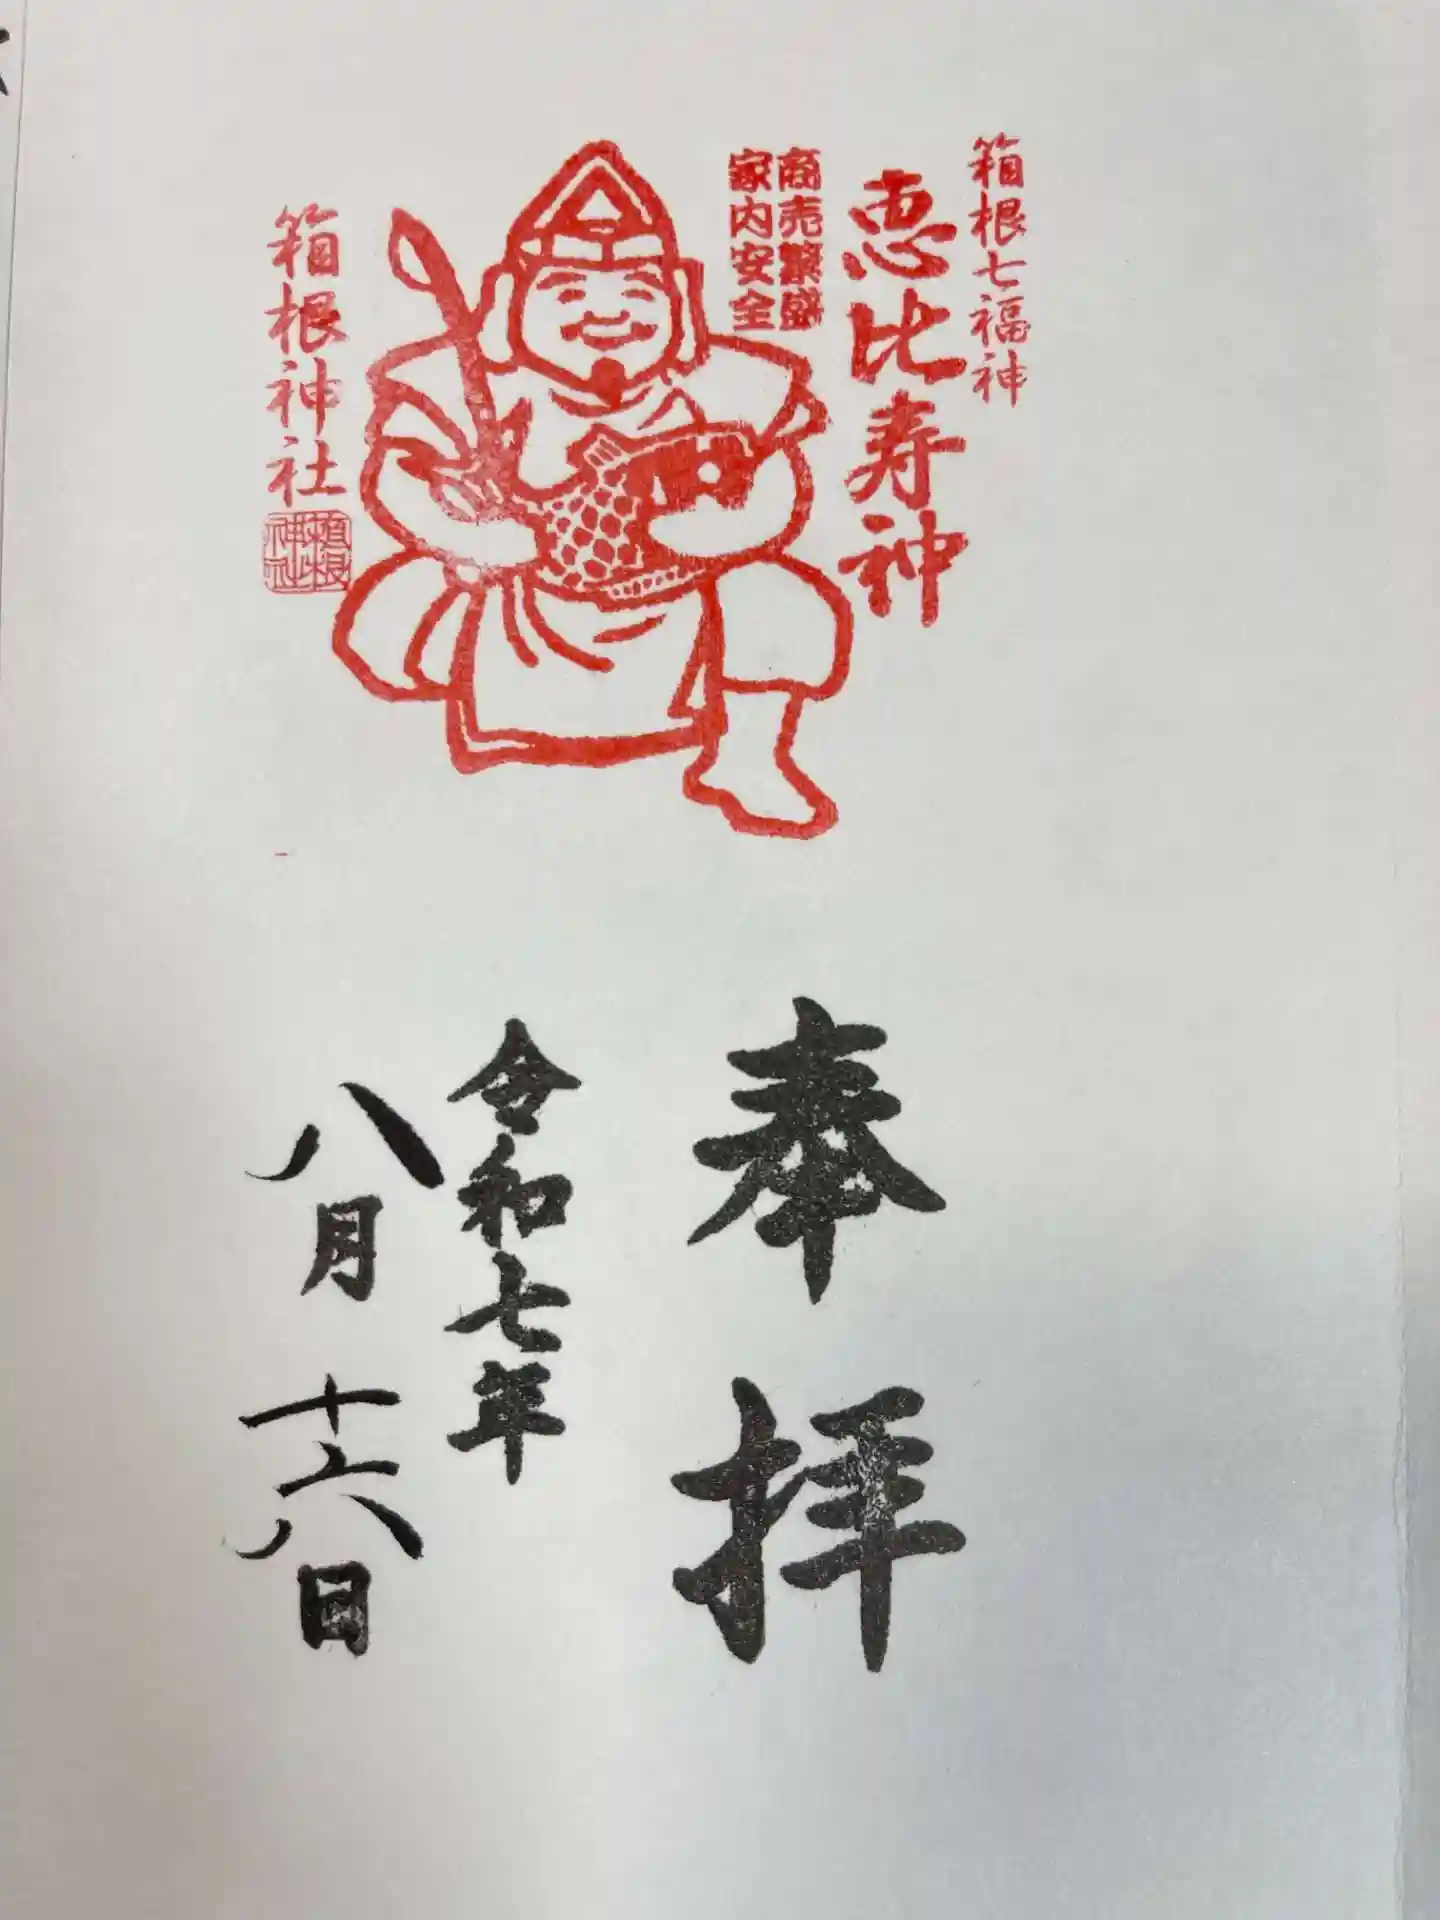 箱根七福神
恵比寿神
商売繁盛
家内安全
箱根神社
箱根
神社
奉拝
令和七年
八月十六日